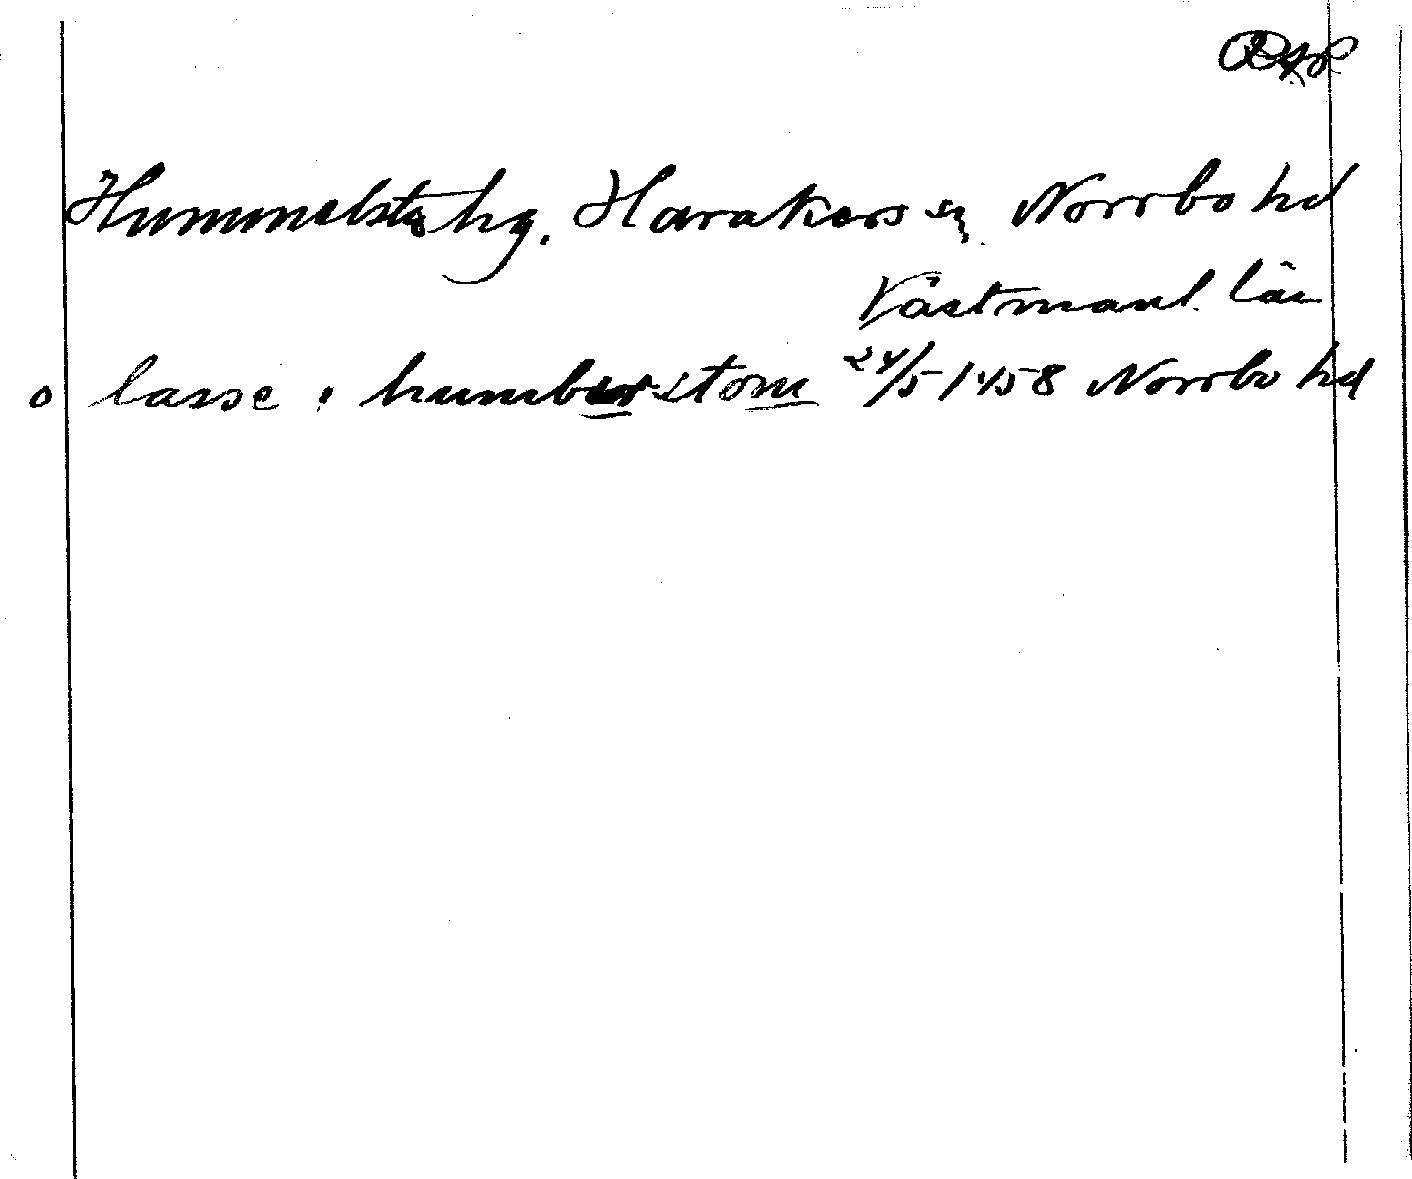 Hummelsta hg. Harakers sn Norrbo hd
Västmanl. län
o lasse i humberstom 24/5 1458 Norrbo hd